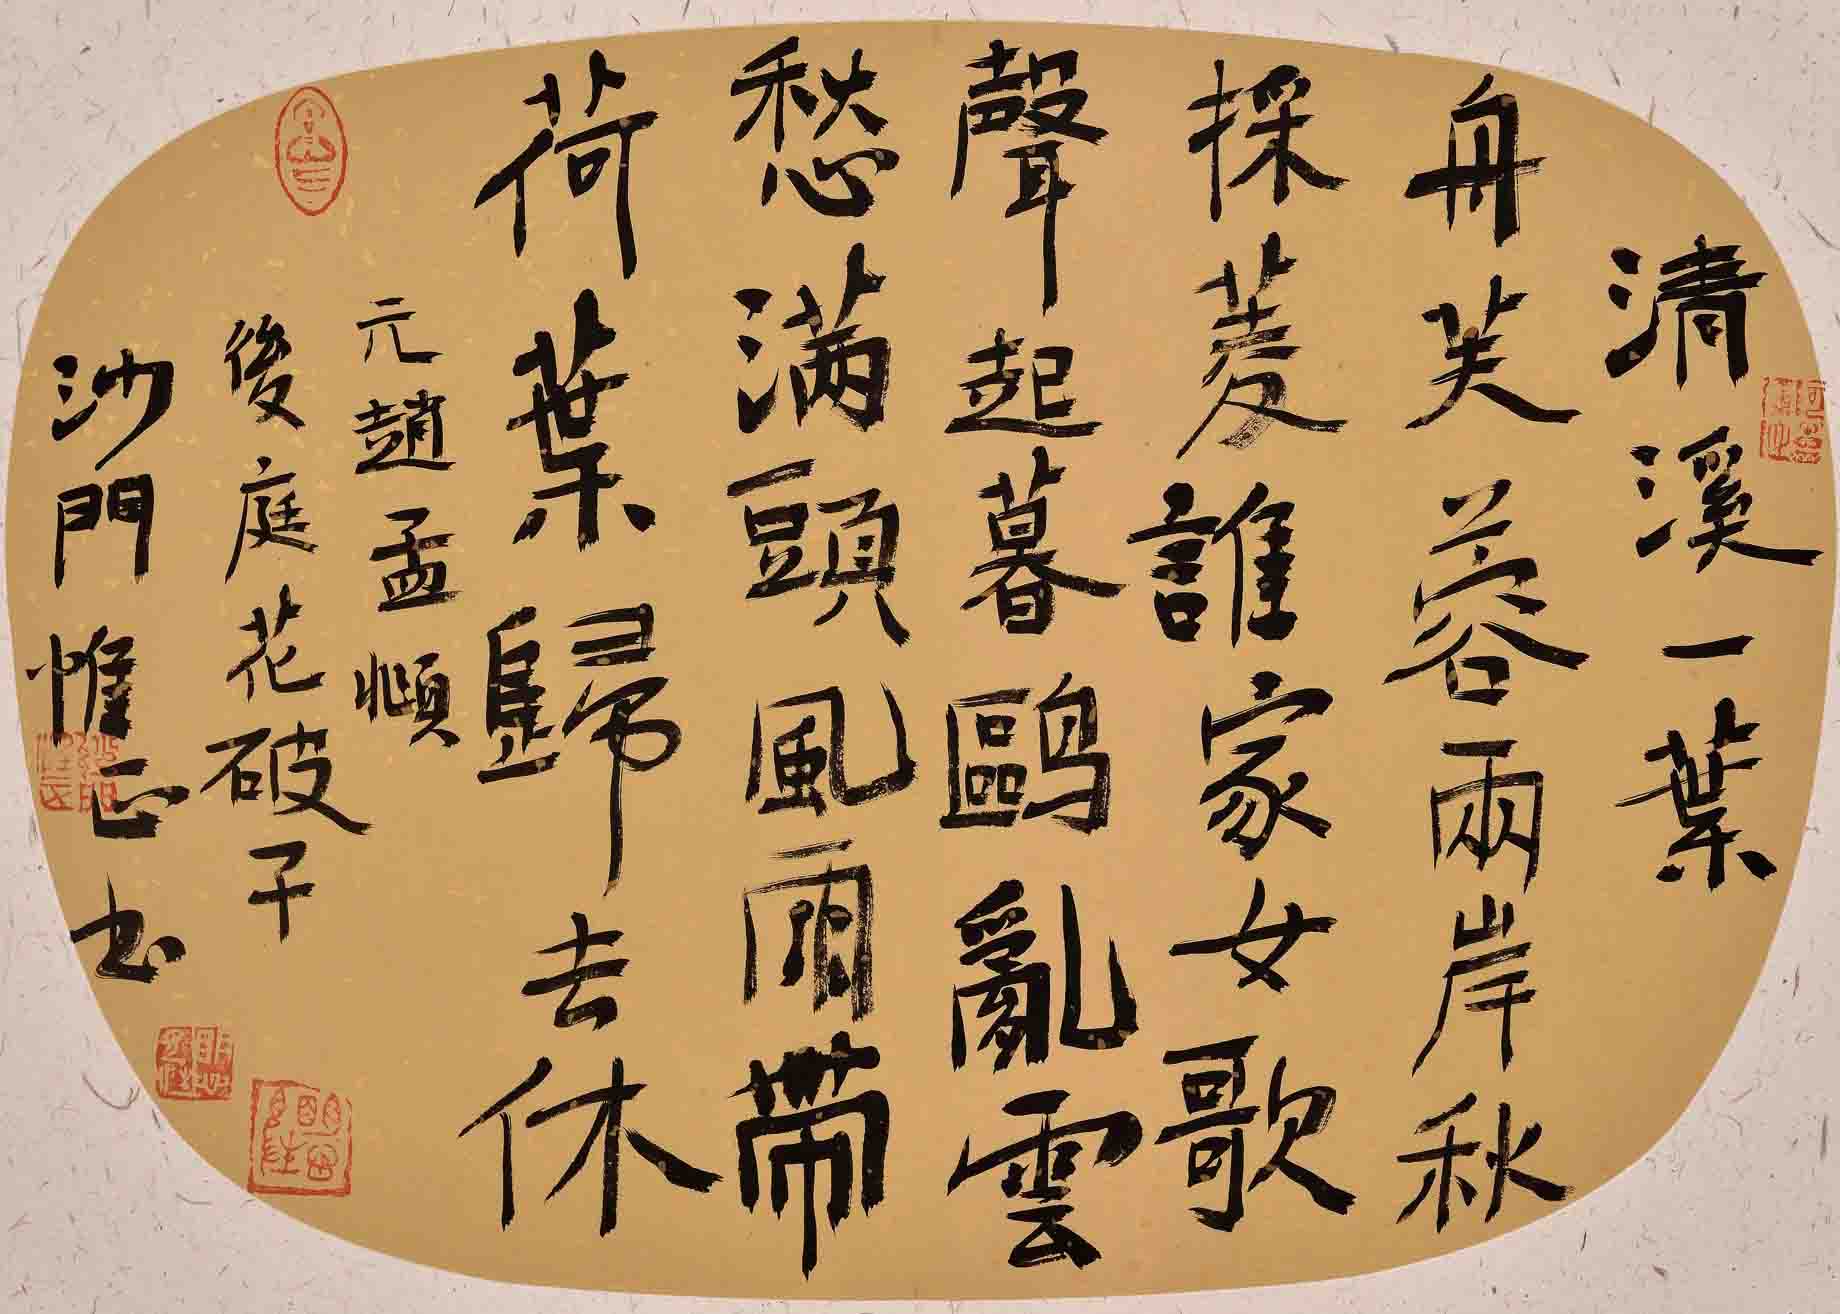 清溪一葉
舟芙蓉兩岸秋
採菱誰家女歌
聲起暮鷗亂雲
愁滿頭風雨帶
荷葉歸去休
元趙孟頫
後庭花破子
沙門惟正书